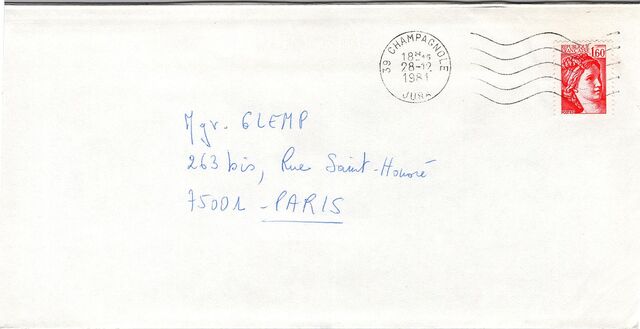 39 CHAMPAGNOLE
18H45
28-12
1981
JURA
1,60
Mgr. GLEMP
263 bis, Rue Saint-Honoré
75001 - PARIS